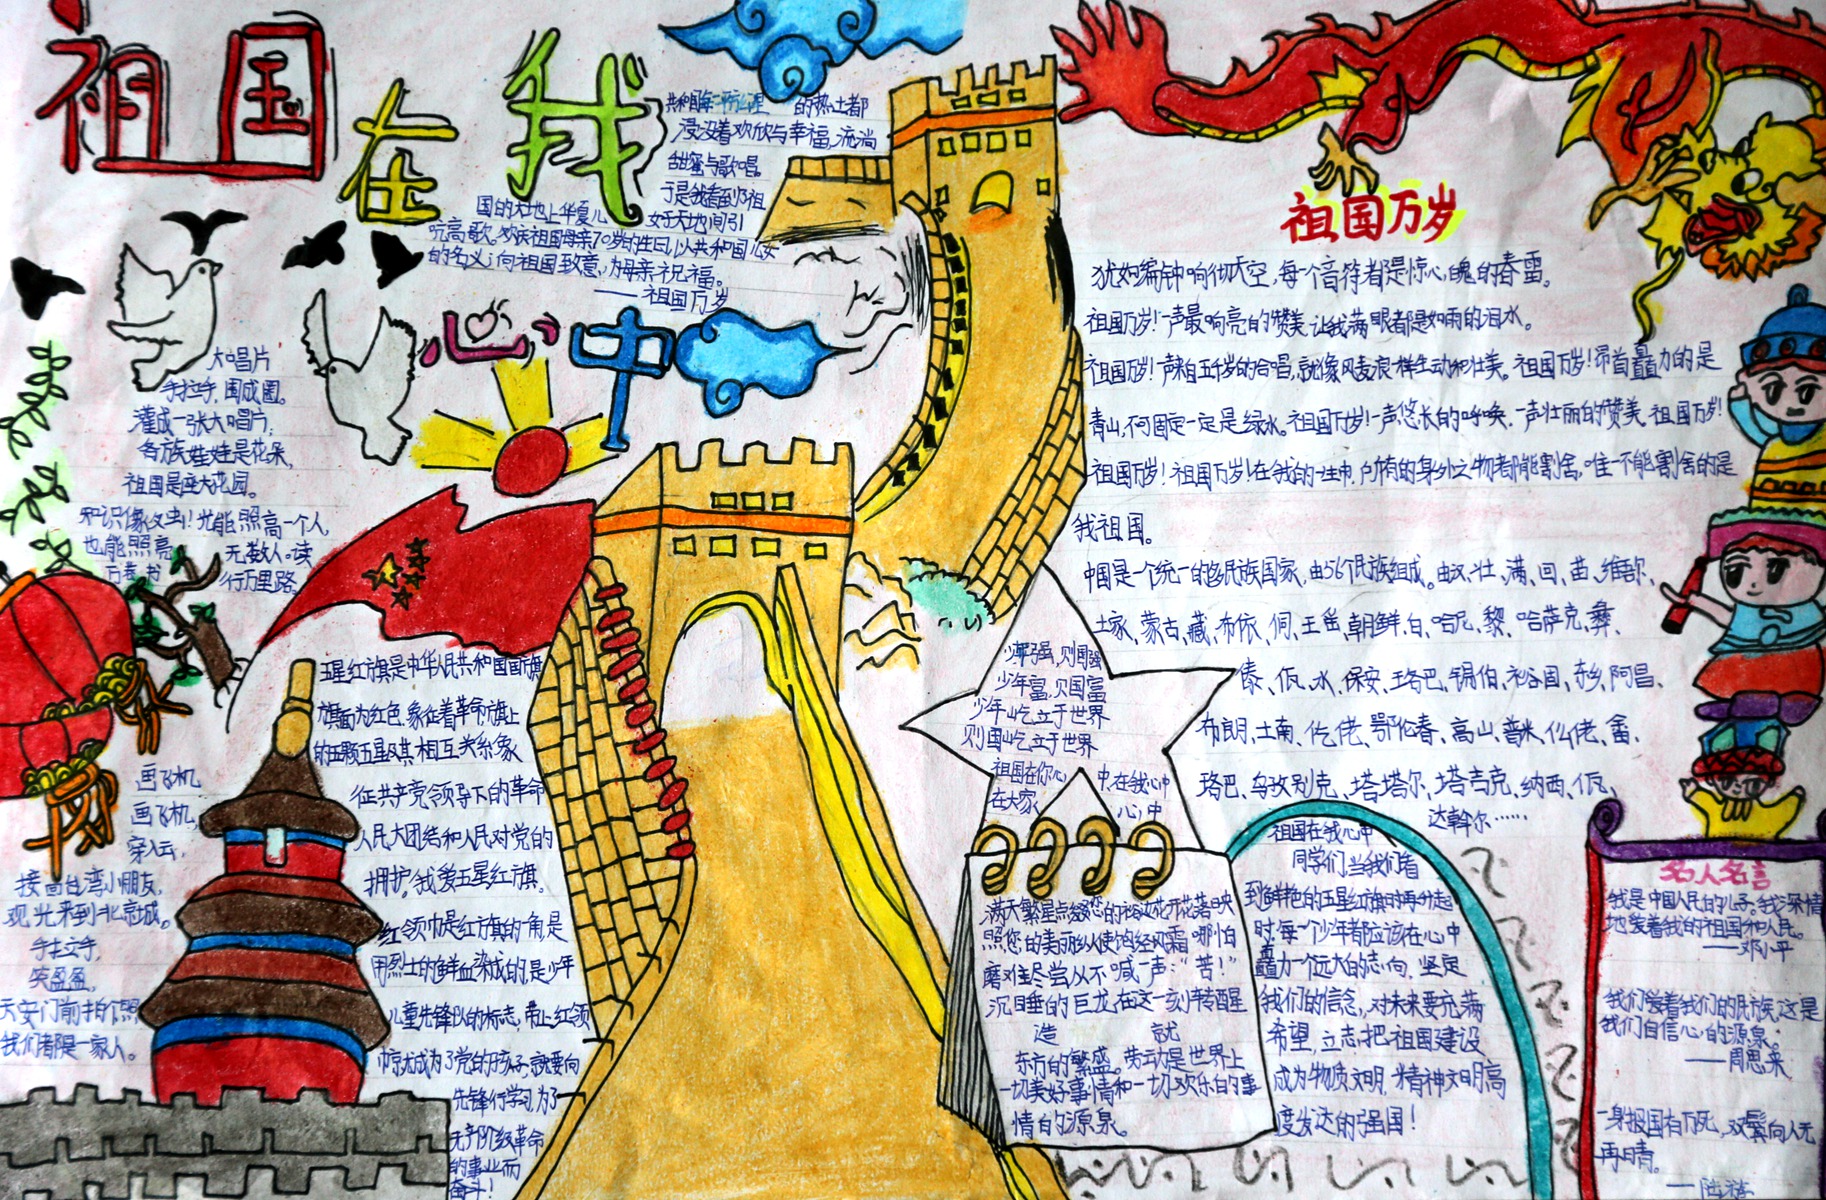 祖国在我
心中
共和国每一 的热土都
浸没着欢欣与幸福,流淌
甜蜜与歌唱。
于是我看到了祖
国的大地上华夏儿 女于天地间引
吭高歌。欢庆祖国母亲70岁的生日,以共和国儿女
的名义;向祖国致意,为母亲祝福。
——祖国万岁
大唱片
手拉手,围成圈。
灌成一张大唱片,
各族娃娃是花朵,
祖国是座大花园。
知识像 ! 光能照高一个人,
也能照亮 无数人。读
万卷书 行万里路。
五星红旗是中华人民共和国国旗
旗面为红色,象征着革命,旗上
的五颗五星及其相互关系象
征共产党领导下的革命
人民大团结和人民对党的
拥护。我爱五星红旗。
红领巾是红旗的一角,是
用烈士的鲜血染成的,是少年
儿童先锋队的标志,带上红领
巾就成为了党的孩子,就要向
先锋们学习,为了
无产阶级革命
的事业而
奋斗!
画飞机,
画飞机,
穿入云,
接高台湾小朋友,
观光来到北京城。
手拉手,
笑盈盈,
天安门前拍个照
我们都是一家人。
祖国万岁
犹如编钟响彻天空,每个音符都是惊心 魄的春雷。
祖国万岁!一声最响亮的赞美,让我满眼都是如雨的泪水。
祖国万岁!一声和五千岁的合唱,就像风麦浪一样生动和壮美。祖国万岁!昂首矗力的是
青山,何固定一定是绿水。祖国万岁!一声悠长的呼唤,一声壮丽的赞美,祖国万岁!
祖国万岁!祖国万岁!在我的一生中,所有的身外之物者都能割舍。唯一不能割舍的是
我祖国。
中国是一个统一的多民族国家,由56个民族组成。由汉、壮、满、回、苗、维吾尔、
土家、蒙古、藏、布依、侗、王瑶、朝鲜、白、哈尼、黎、哈萨克、彝、
傣、佤、水、保安、珞巴、锡伯、裕谷固、东乡、阿昌、
布朗、土南、仡佬、鄂伦春、高山、普米、仫佬、畲、
珞巴、乌孜别克、塔塔尔、塔吉克、纳西、佤、
达斡尔……
少年强,则国强
少年富,则国富
少年屹立于世界
则国屹立于世界
祖国在你心 中,在我心中
在大家 心中
满天繁星点缀您的裕衣花开花落映
照您的美丽纵使饱经风霜 哪怕
磨难尽尝从不喊一声:“苦!”
沉睡的巨龙,在这一刻转醒
造 就
东方的繁盛。劳动是世界上
一切美好事情和一切欢乐的事
情的源泉。
祖国在我心中
同学们,当我们看
到鲜艳的五星红旗时再升起
时,每一个少年都应该在心中
矗力一个远大的志向,坚定
我们的信念,对未来要充满
希望,立志把祖国建设
成为物质文明,精神文明高
度发达的强国!
名人名言
我是中国人民的儿子。我深情
地爱着我的祖国和人民。
——邓小平
我们爱着我们的民族,这是
我们自信心的源泉。
——周恩来
一身报国有万死,双鬓向人无
再青。
——陆游